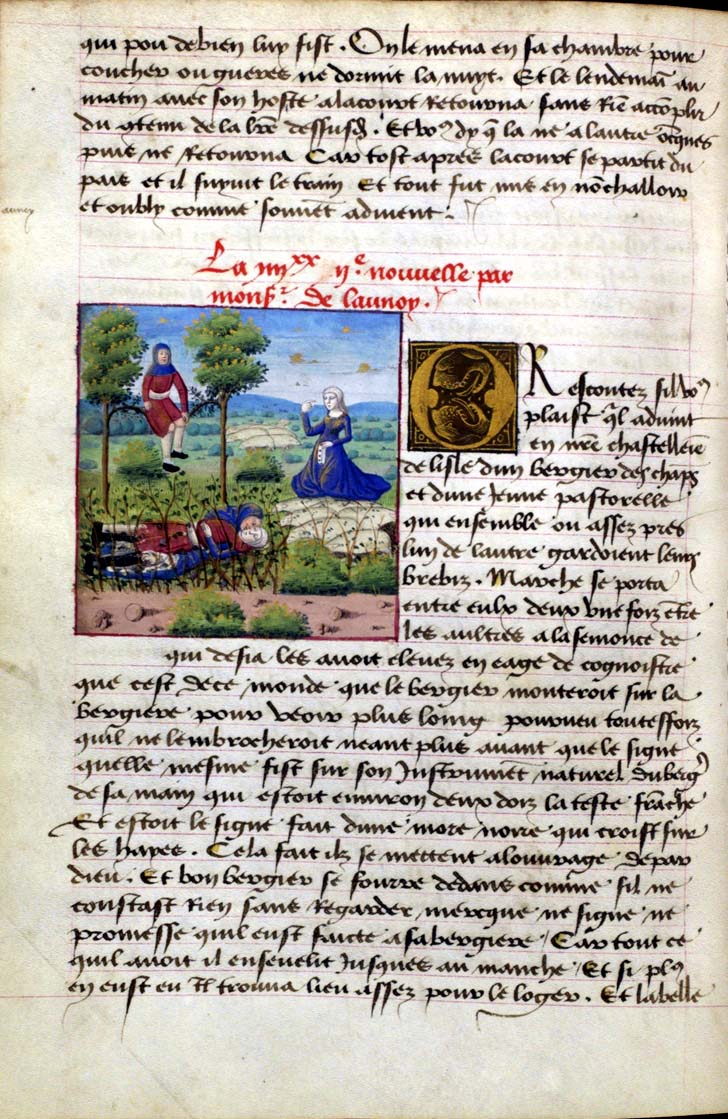 qui pou de bien luy fist . On le mena en sa chambre pour
coucher ou gueres ne dormit la nuyt . Et le lendemaī au
matin auec son hoste a la court retourna sans riē accōplir
du 9tenu de la br̄e dessusd̄ . Et vo9 dy q̄ la ne a lautre oncques
puis ne retourna Car tost apres la court se partit du
pais et il suyuit le train Et tout fut mis en nōchalloir
et oubly comme souuēt aduient .
La iiijxx ije nouuelle par
monsr. de launoy .
OR escoutez sil vo9
plaist ql aduint
en nr̄e chastellenie
de lisle dun bergier des chāps
et dune Jeune pastorelle
qui ensemble ou assez pres
lun de lautre gardoient leurs
brebiz . Marche se porta
entre eulx deux vne foiz ētre
les aultres a la semonce de
qui desia les auoit eleuez en eage de cognoistre
que cest de ce monde que le bergier monteroit sur la
bergiere pour veoir plus loing pourueu touteffoiz
quil ne lembrocheroit neant plus auant que le signe
quelle mesme fist sur son Instrumēt naturel du bergr
de sa main qui estoit enuiron deux doiz la teste frāche
Et estoit le signe fait dune more noire qui croist sur
les hayes . Cela fait ilz se mettent a louurage de par
dieu . Et bon bergier se fourre dedans comme sil ne
coustast rien sans regarder mercque ne signe ne
promesse quil eust faicte a sa bergiere / Car tout ce
quil auoit il enseuelit Jusques au manche / Et si pl9
en eust eu Il trouua lieu assez pour le loger . Et la belle